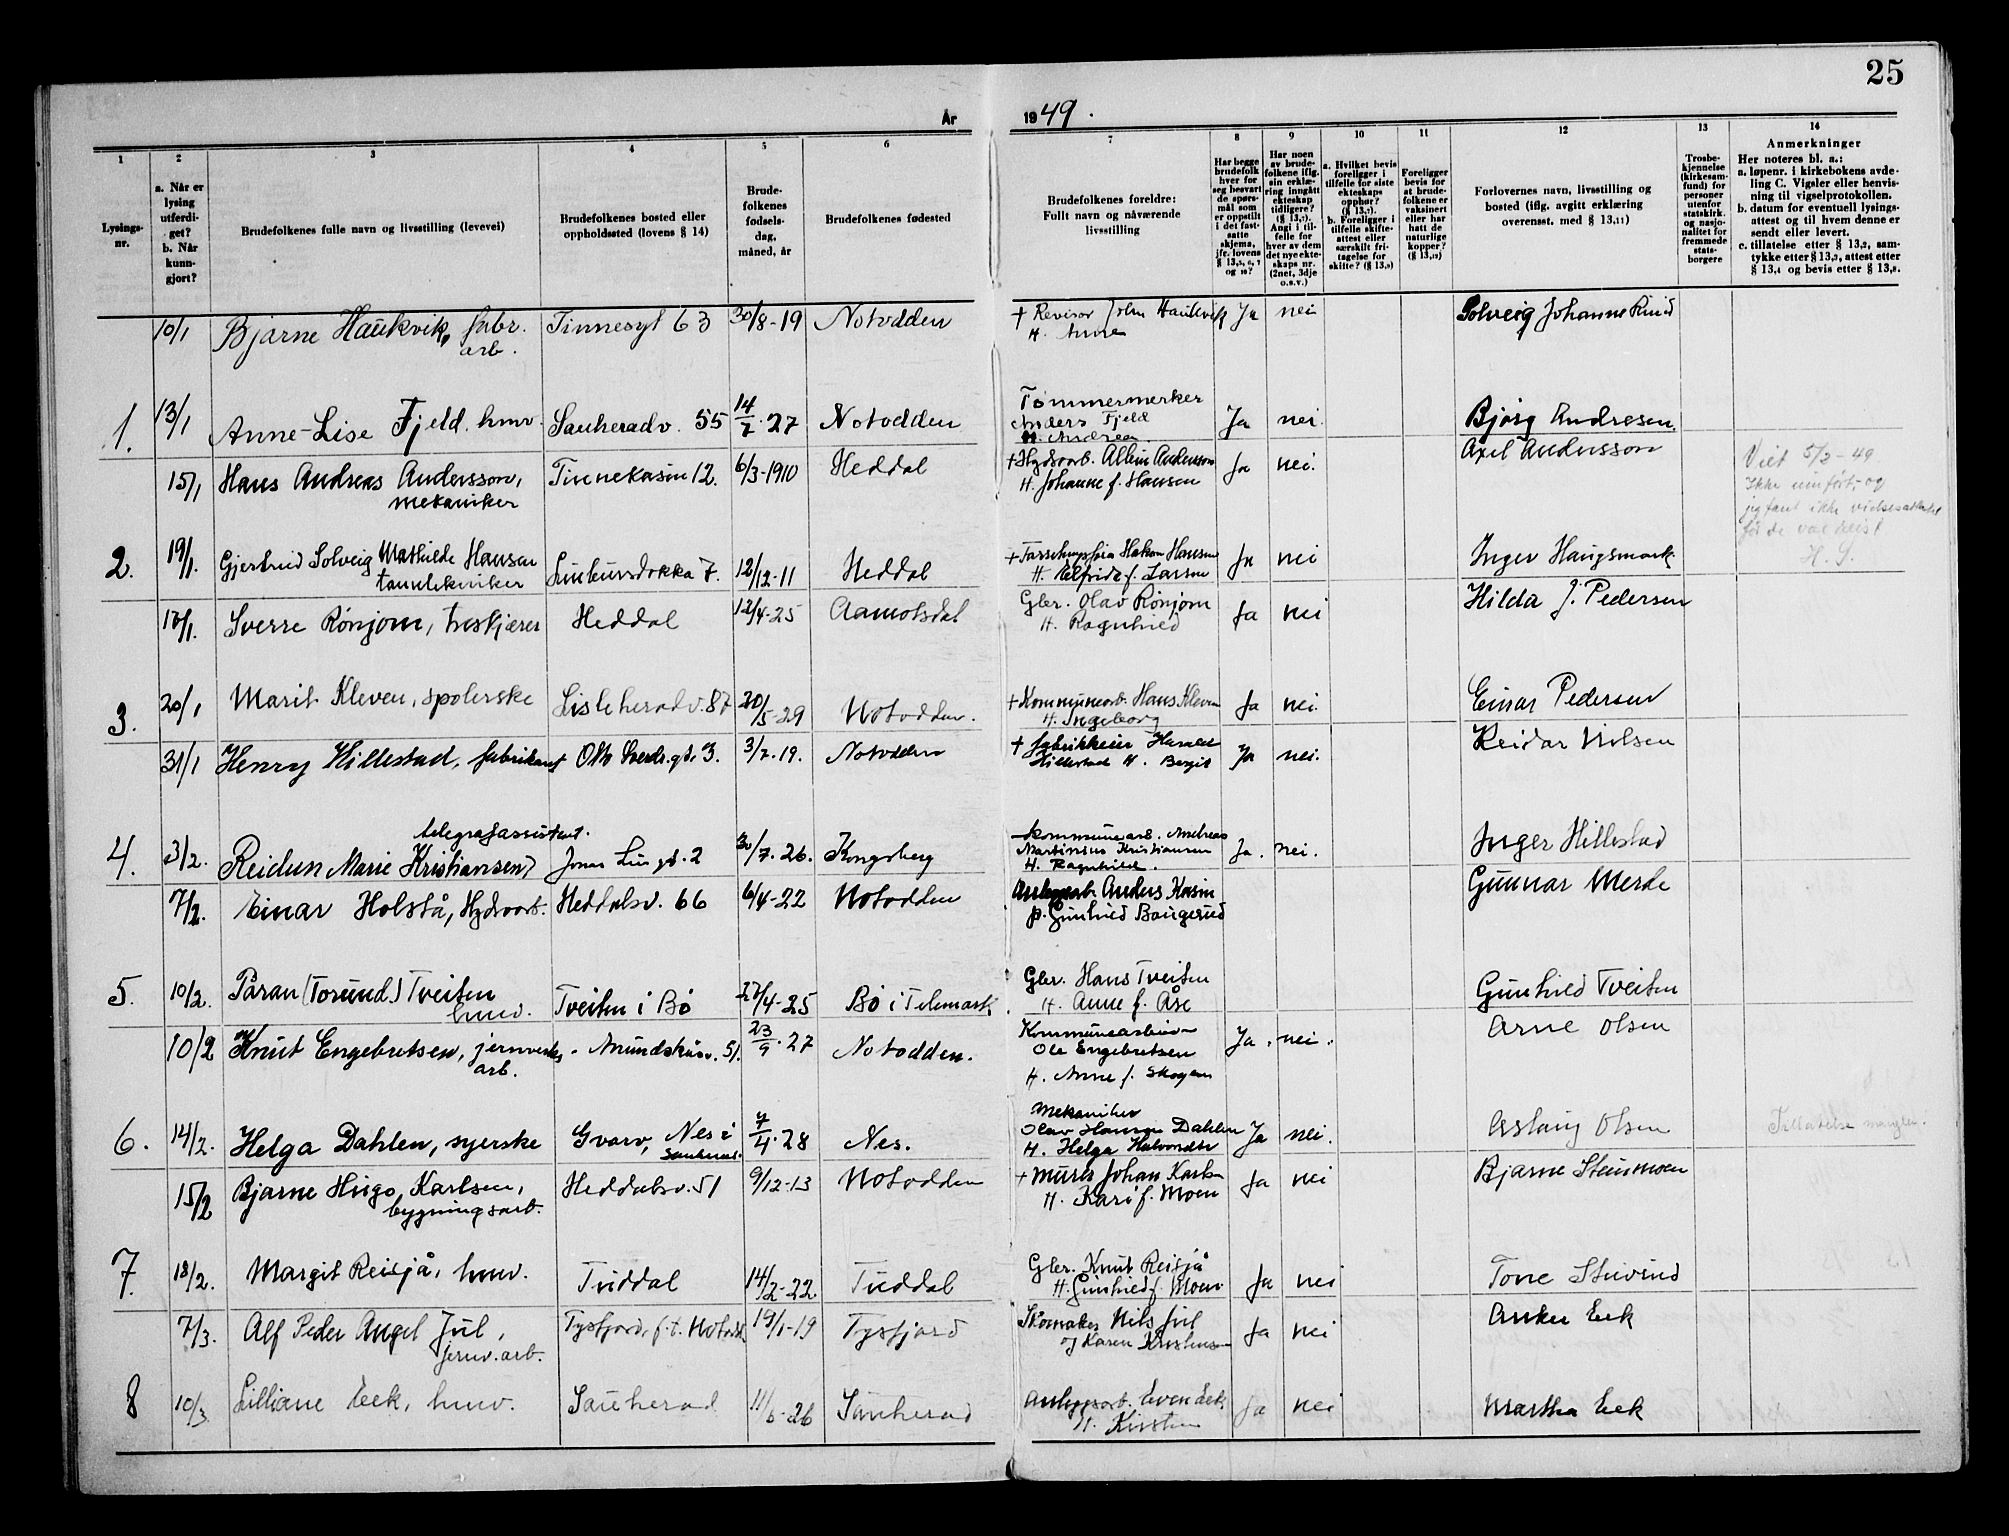 25
År
1949.
1
2
3
4
5
6
7
8
9
10
11
12
13
14
Lysings-
nr.
a. Når er
lysing
utferdi-
get?
b. Når
kunn-
gjort?
Brudefolkenes fulle navn og livsstilling (levevei)
Brudefolkenes bosted eller
oppholdssted (lovens § 14)
Brude-
folkenes
fødsels-
dag,
måned, år
Brudefolkenes fødested
Brudefolkenes foreldre:
Fullt navn og nåværende
livsstilling
Har begge
brudefolk
hver for
seg besvart
de spørs-
mål som
er oppstilt
i det fast-
satte
skjema,
jfr. lovens
§ 13,5, 6, 7
og 10?
Har noen
av brude-
folkene iflg.
sin erklæ-
ring inngått
ekteskap
tidligere?
(§ 13,7).
Angi i til-
felle for
hver av dem
det nye ekte-
skaps nr.
(2net, 3dje
o.s.v.)
a. Hvilket bevis
foreligger i
tilfelle for siste
ekteskaps
opphør?
(§ 13,7).
b. Foreligger i
tilfelle skifte-
attest eller
særskilt fri-
tagelse for
skifte? (§ 13,9)
Foreligger
bevis for
at brude-
folkene er
vaksinert
eller har
hatt de
naturlige
kopper?
(§ 13,12)
Forlovernes navn, livsstilling og
bosted (iflg. avgitt erklæring
overensst. med § 13,11)
Trosbe-
kjennelse
(kirkesam-
fund) for
personer
utenfor
statskirk.
og nasjo-
nalitet for
fremmede
stats-
borgere
Anmerkninger
Her noteres bl. a.:
a. løpenr. i kirkebokens avde-
ling C. Vigsler eller henvis-
ning til vigselprotokollen.
b. datum for eventuell lysings-
attest og til hvem denne er
sendt eller levert.
c. tillatelse etter § 13,2, sam-
tykke etter § 13,3, attest etter
§ 13,4 og bevis etter § 13,8.
10/1 Bjarne Haukvik, fabr. Tinnesgt 63 30/8-19 Notodden + Revisor John Haukvik Ja nei Solveig Johanne Ruud
arb. H. Anna
1. 13/1 Anne-Lise Fjeld. hmv. Sauheradv. 55 14/7.27 Notodden Tømmermerker Ja nei. Bjørg Andresen.
Anders Fjeld
H. Andrea.
15/1 Hans Andreas Andersson, Tinnekasin 12. 6/3-1910 Heddal + Hydroarb. Albin Andersson Ja nei. Axel Andersson
mekaniker H. Johanne f. Hansen
Viet 5/2-49
Ikke innført, og
jeg fant ikke vielsesattest
før de var reist
H. S.
2. 19/1. Gjertrud Solveig Mathilde Hansen 7. 12/12-11 Heddal Hakon Hansen Ja nei Inger Haugsmark
tanntekniker H. Elfrida f. Larsen
17/1. Sverre Rønjom, treskjærer Heddal 12/4-25 Aamotsdal Gbr. Olav Rønjom Ja nei Hilda J. Pedersen
H. Ragnhild
3. 20/1 Marit Kleven, spolerske Lisleheradv. 87 20/5-29 Notodden. + Kommunearb. Hans Kleven Ja nei. Einar Pedersen
H. Ingeborg
31/1 Henry Hillestad, fabrikant Oth Sverdr.gt. 3. 3/7.19. Notodden + fabrikkeier Harald Ja nei. Reidar Nilsen
Hillestad H. Bergit
telegrafassistent.
4. 3/2. Reidun Marie Kristiansen, Jonas Lies gt. 2 30/7.26. Kongsberg Kommunearb. Andreas Ja. nei. Inger Hillestad
Martinius Kristiansen
H. Ragnhild.
7/2. Einar Holstå, Hydroarb. Heddalsv. 66 6/4-22 Notodden Anleggsarb. Anders Kasin Gunnar Merde
p. Gunhild Baugerud
5. 10/2. Påran (Torund) Tveiten Tveiten i Bø 27/4-25 Bø i Telemark Gbr. Hans Tveiten Gunhild Tveiten
hmv. H. Anne f. Åse
10/2 Knut Engebretsen, jernverks- Amundskåsv. 51. 23/9.27 Notodden. Kommunearbeider Ja. nei. Arne Olsen
arb. Ole Engebretsen
H. Anne f. Skogen
6. 14/2. Helga Dahlen, syerske Gvarv, Nes i 7/4.28 Nes. Mekaniker Ja nei. Aslaug Olsen Tillatelse mangler.
Sauherad. Olav Hansen Dahlen
H. Helga Halvordtr
15/2 Bjarne Hugo Karlsen, Heddalsv. 51 9/12-13 Notodden + Murer Johan Karlsen Ja nei Bjarne Steinmoen
bygningsarb. H. Kari f. Moen
7. 18/2. Margit Reisjå, hmv. Tuddal 14/2-22 Tuddal Gbr. Knut Reisjå Ja nei Tone Stuvrud
H. Gunhild f. Moen
7/3. Alf Peder Angel Jul, Tysfjord, f.t. Notodd. 19/1-19 Tysfjord Skomaker Nils Jul Ja nei Anker Eek
jernv. arb. og Karen Kristensen
8 10/3 Lilliane Eek, hmv. Sauherad 11/6-26 Sauherad Anleggsarb. Even Eek Ja nei Martha Eek
H. Kirsten